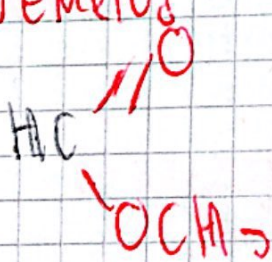 O
HC
OCH₃